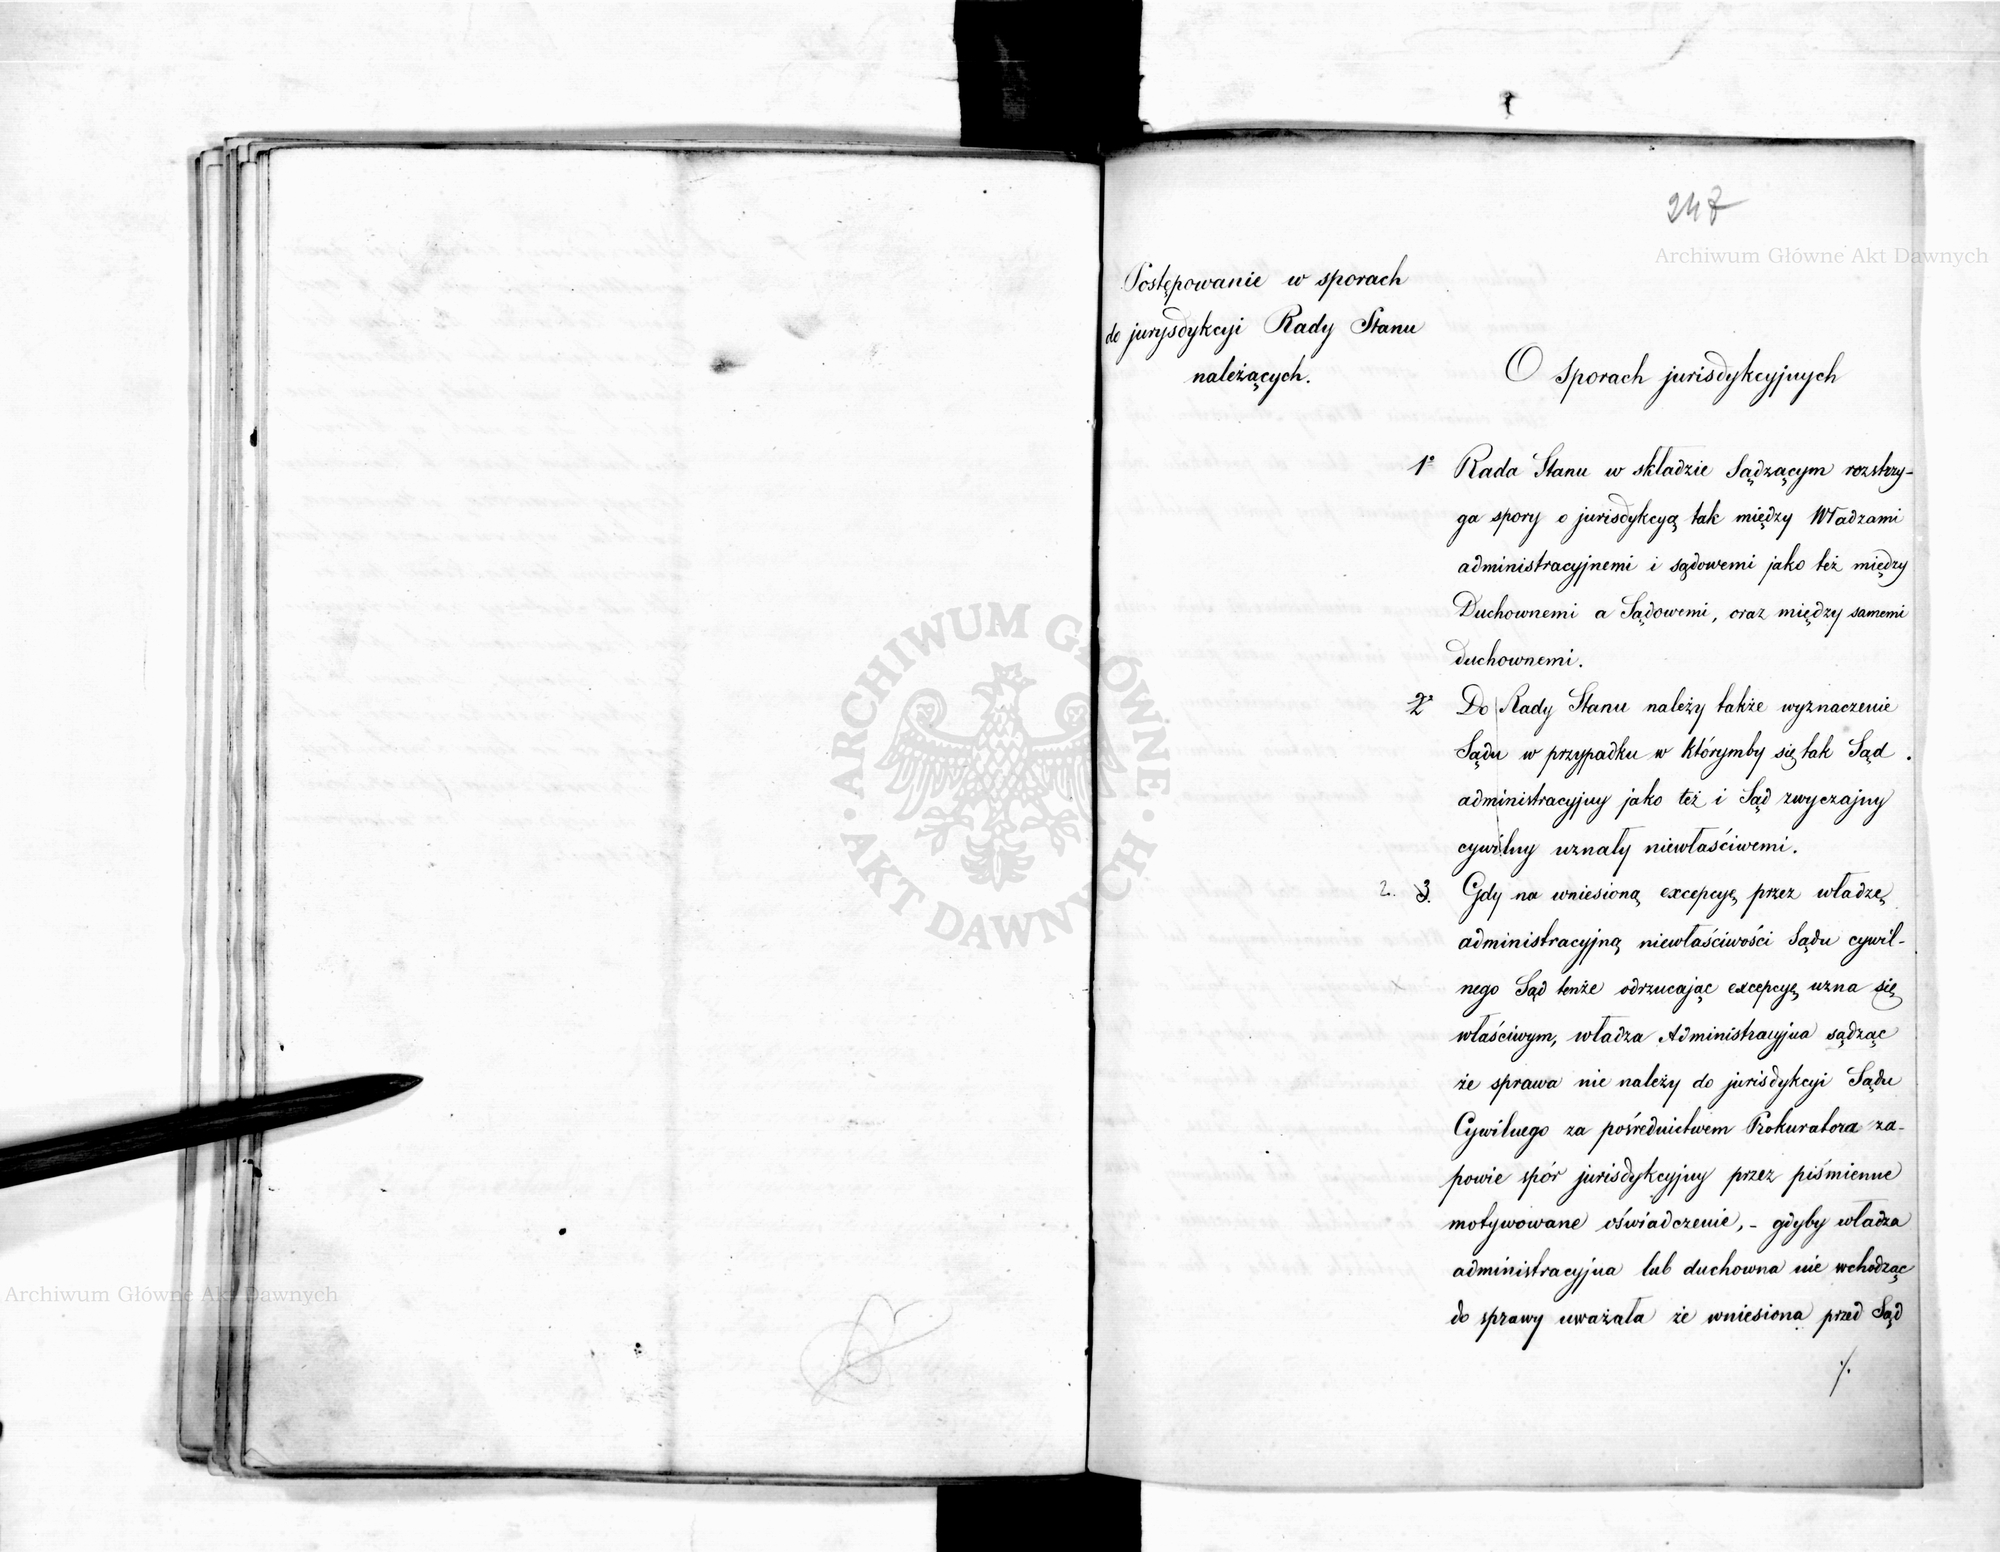 247
Postępowanie w sporach
do jurysdykcyi Rady Stanu
należących.
O sporach jurisdykcyjnych
1º Rada Stanu w składzie Sądzącym rozstrzy-
ga spory o jurisdykcyą tak między Władzami
administracyjnemi i sądowemi jako też między
Duchownemi a Sądowemi, oraz między samemi
duchownemi.
2º Do Rady Stanu należy także wyznaczenie
Sądu w przypadku w którymby się tak Sąd
administracyjny jako też i Sąd zwyczajny
cywilny uznały niewłaściwemi.
2. 3. Gdy na wniesioną excepcyę przez władzę
administracyjną niewłaściwości Sądu cywil-
nego Sąd tenże odrzucając excepcyę uzna się
właściwym, władza Administracyjna sądząc
że sprawa nie należy do jurisdykcyi Sądu
Cywilnego za pośrednictwem Prokuratora za-
powie spór jurisdykcyjny przez piśmienne
motywowane oświadczenie, - gdyby władza
administracyjna lub duchowna nie wchodząc
do sprawy uważała że wniesiona przed Sąd
./.
ARCHIWUM GŁÓWNE
AKT DAWNYCH
Archiwum Główne Akt Dawnych
Archiwum Główne Akt Dawnych